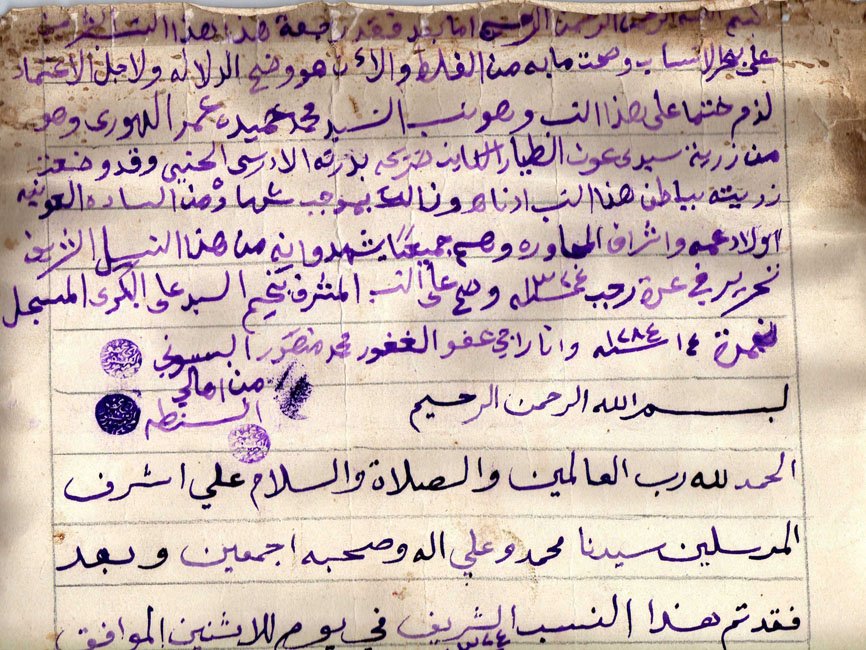 بسم الله الرحمن الرحيم اما بعد فقد رجعة هذا هذا النسب الشريف
على بحر الانساب وصحت ما به من الغلط والان هو وضح الدلاله ولاجل الاعتماد
لذم ختمنا على هذا النسب وهو نسب السيد محمد حميده عمر الهورى وهو
من زرية سيدى عون الطيار الكاين ضريحه الادرسى الحنبى وقد وضعة
زريته بباطن هذا النسب ادناه وذالك بموجب من الساده العونيه
اولاد عمه واشراف المحاوره وهم جميعًا يشهدو انه من هذا النسل الشريف
تحرير فى غرة رجب وصح على النسب المتشرف بختم السيد على البكرى المسجل
نمرة ١٤ سنه ١٢٨٤ وانا راجي عفو الغفور محمد منصور البسيونى
من اهالي
السنطه
بسم الله الرحمن الرحيم
الحمد لله رب العالمين والصلاة والسلام علي اشرف
المرسلين سيدنا محمد وعلي اله وصحبه اجمعين وبعد
فقد تم هذا النسب الشريف في يوم الاثنين الموافق